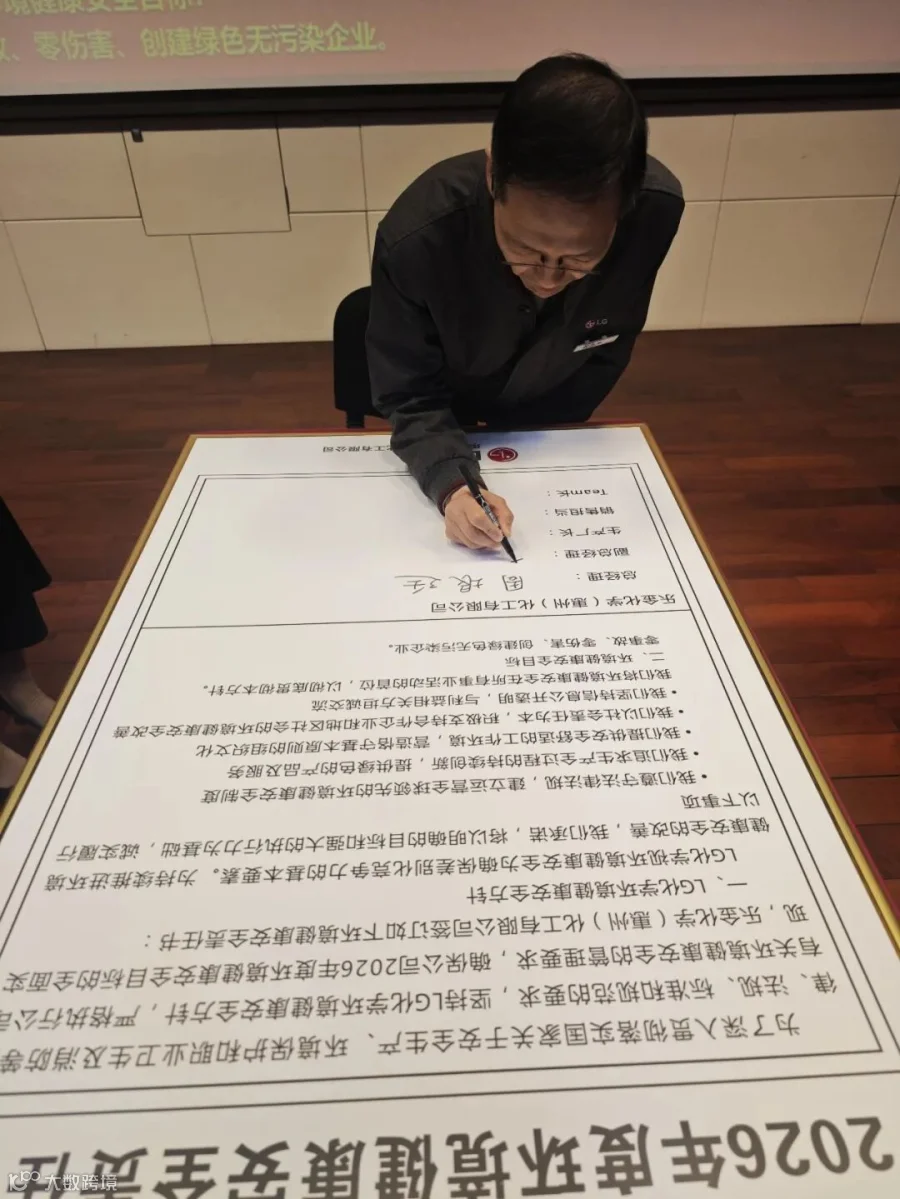 环境健康安全目标:
故、零伤害、创建绿色无污染企业。
LG
2026年度环境健康安全责任
为了深入贯彻落实国家关于安全生产、环境保护和职业卫生及消防等
律、法规、标准和规范的要求,坚持LG化学环境健康安全方针,严格执行公司
有关环境健康安全的管理要求,确保公司2026年度环境健康安全目标的全面实
现,乐金化学(惠州)化工有限公司签订如下环境健康安全责任书:
一、LG化学环境健康安全方针
LG化学视环境健康安全为确保差别化竞争力的基本要素。为持续推进环境
健康安全的改善,我们承诺,将以明确的目标和强大的执行力为基础,诚实履行
以下事项
•我们遵守法律法规,建立运营全球领先的环境健康安全制度
•我们追求生产全过程的持续创新,提供绿色的产品及服务
•我们提供安全舒适的工作环境,营造恪守基本原则的组织文化
•我们以社会责任为本,积极支持合作企业和地区社会的环境健康安全改善
•我们坚持信息公开透明,与利益相关方坦诚交流
我们将环境健康安全在所有事业活动的首位,以彻底贯彻本方针。
二、环境健康安全目标
零事故、零伤害、创建绿色无污染企业。
乐金化学(惠州)化工有限公司
总经理:
副总经理:
生产厂长:
销售担当:
Team长:
化工有限公司
大数跨境